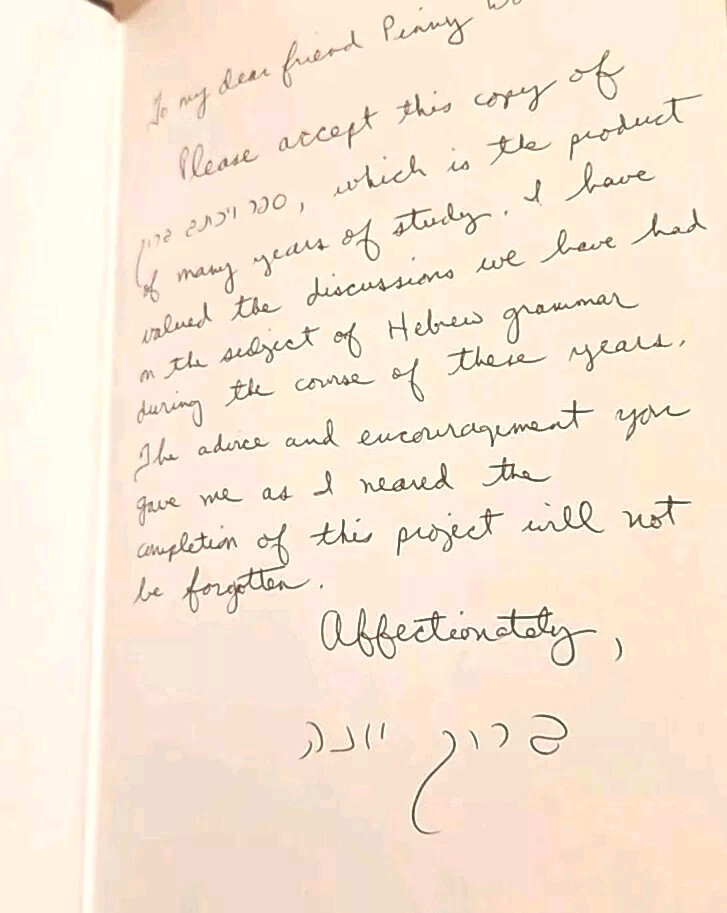 To my dear friend Penny
Please accept this copy of
ספר ויכתב ברוך, which is the product
of many years of study. I have
valued the discussions we have had
on the subject of Hebrew grammar
during the course of these years.
The advice and encouragement you
gave me as I neared the
completion of this project will not
be forgotten.
Affectionately,
ברוך יונה